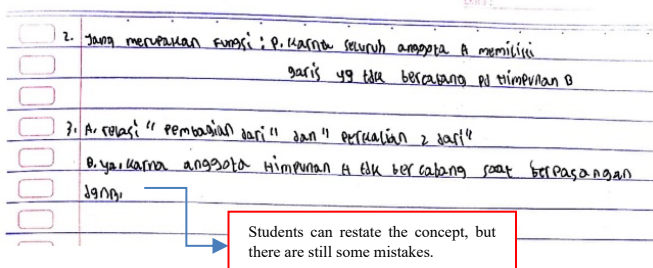 2. Yang merupakan fungsi : P. karna seluruh anggota A memiliki
garis yg tdk bercabang pd Himpunan B
3. A. relasi " Pembagian dari " dan " Perkalian 2 dari "
B. ya, karna anggota Himpunan A tdk bercabang saat berpasangan
dgn B.
Students can restate the concept, but
there are still some mistakes.